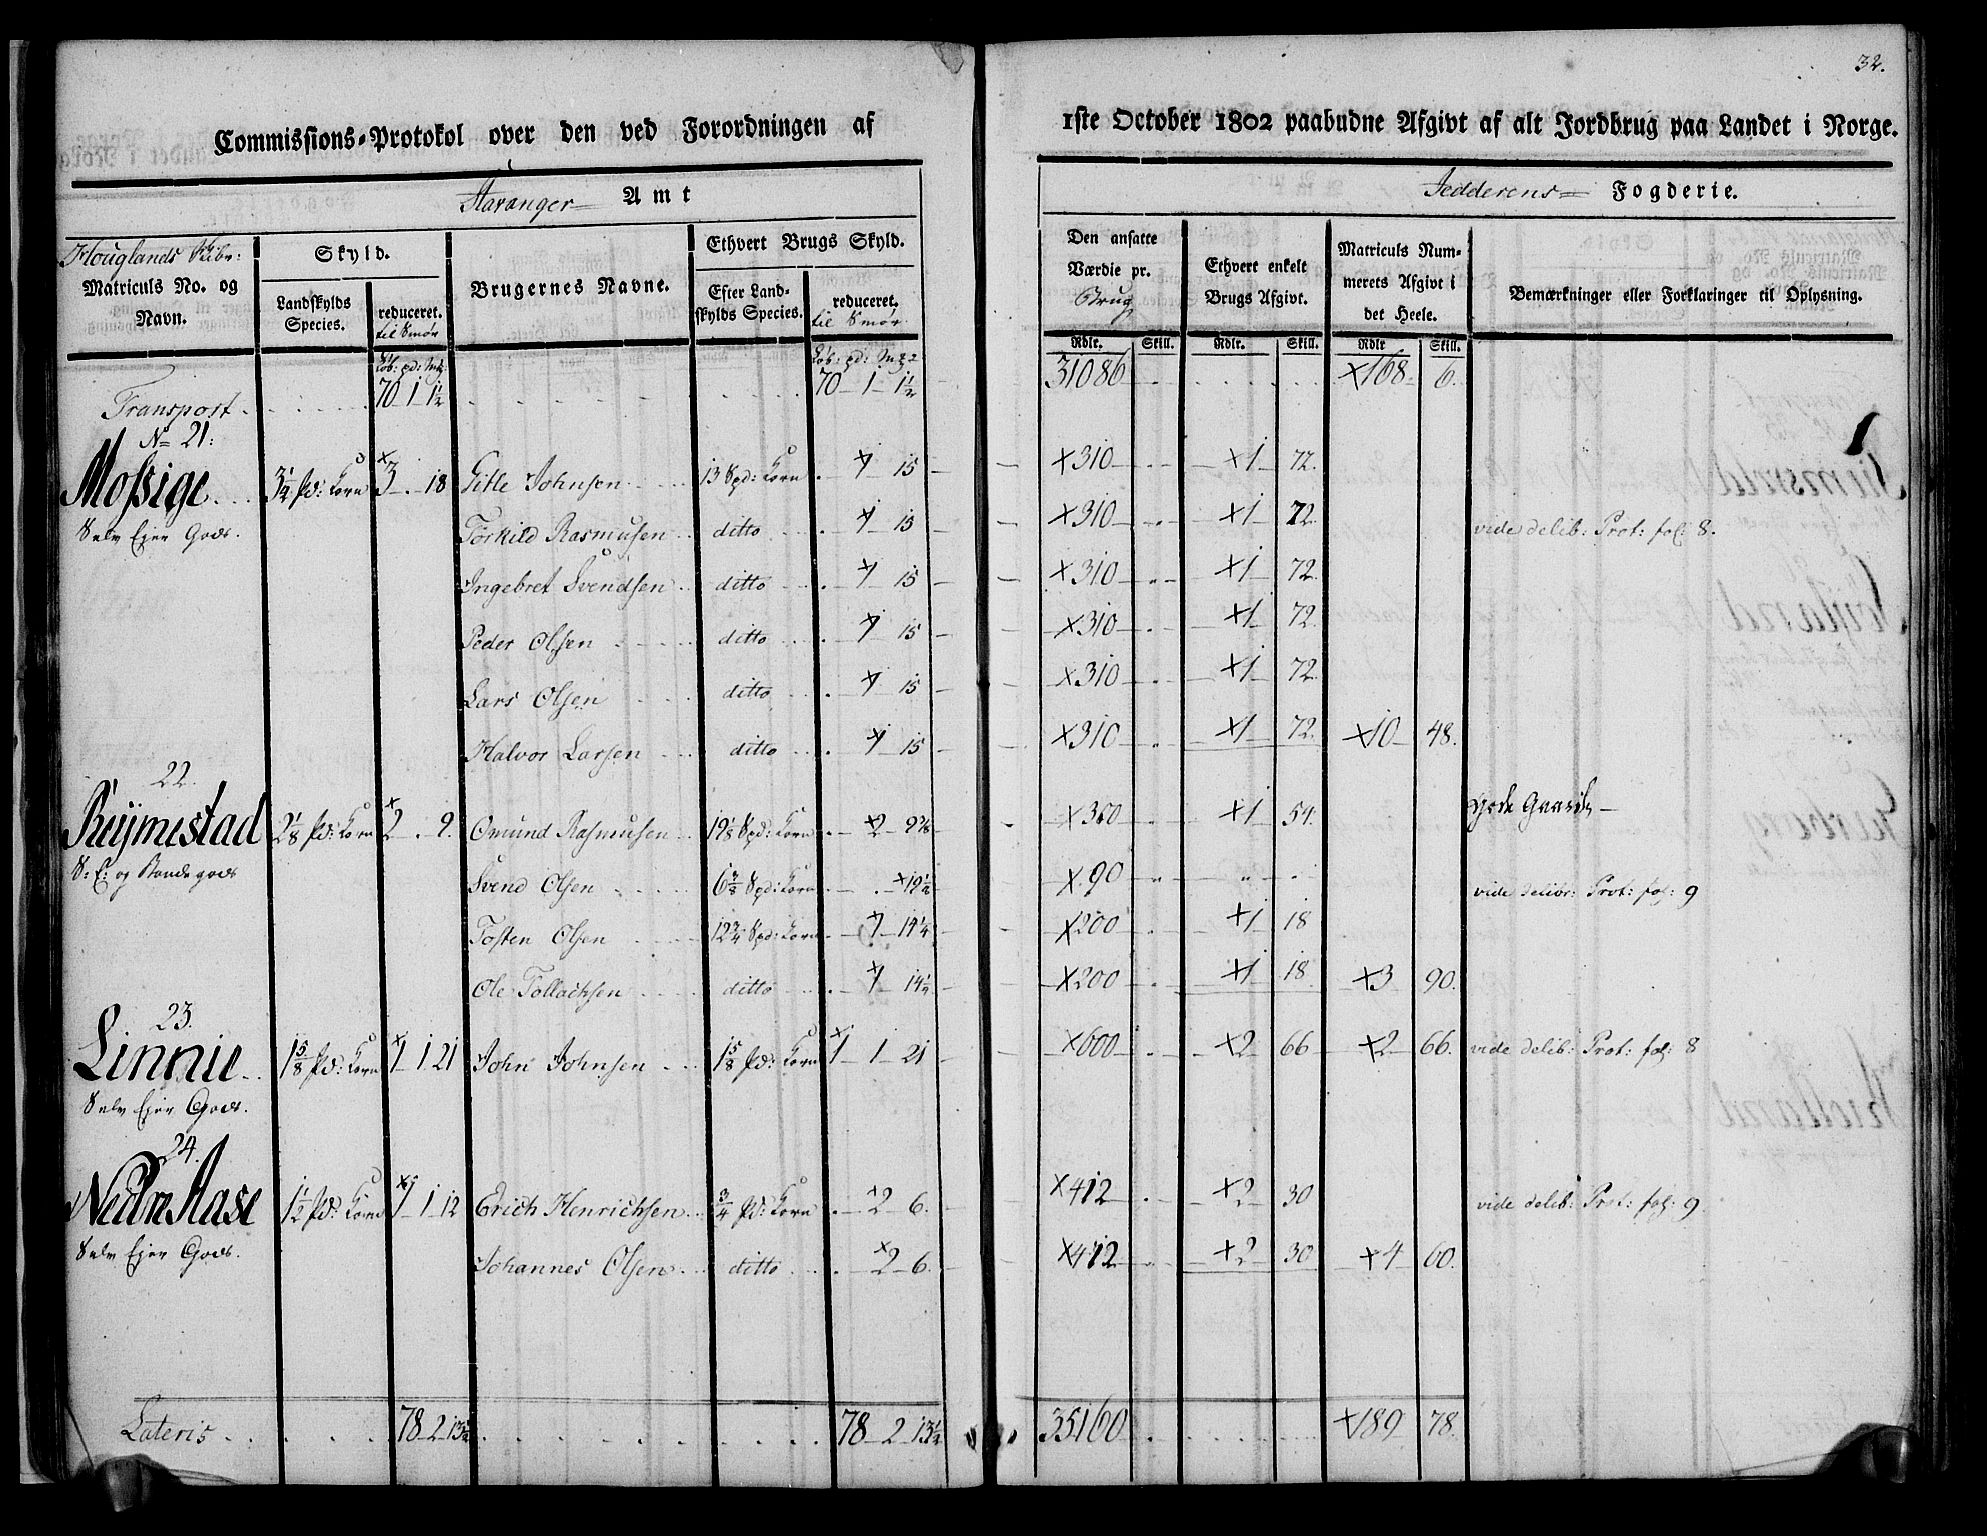 32.
Commissions-Protokol over den ved Forordningen af 1ste October 1802 paabudne Afgivt af alt Jordbrug paa Landet i Norge.
Stavanger Amt
Jedderens Fogderie.
Houglands Skibr:
Matriculs No. og Navn.
Skyld.
Landskylds Species.
reduceret. til Smør
Brugernes Navne.
Ethvert Brugs Skyld.
Efter Landskylds Species.
reduceret. til Smør
Den ansatte Værdie pr. Brug
Ethvert enkelt Brugs Afgivt.
Matriculs Nummerets Afgivt i det Heele.
Bemærkninger eller Forklaringer til Oplysning.
Rdlr. Skill. Rdlr. Skill. Rdlr Skill.
Transport 70 1 1½ 70 1 1½ 31086 ×168 6.
No 21:
Mossige 3¼ Pd: Korn 3 . 18 Gitle Johnsen 13 Spd: Korn 1 15 ×310 ×1 72.
Selv Ejer Gods. Torkild Rasmussen ditto 1 15 ×310 ×1 72. vide delib: Prot: fol: 8.
Ingebret Svendsen ditto 1 15 ×310 ×1 72.
Peder Olsen ditto 1 15 ×310 ×1 72.
Lars Olsen ditto 1 15 ×310 ×1 72.
Halvor Larsen ditto 1 15 ×310 ×1 72. ×10 48.
22.
Reijmestad 2⅛ Pd: Korn 2 . 9. Omund Rasmussen 19⅛ Spd: Korn 2 9⅜ ×360 ×1 54.
S: E: og Bondegods Svend Olsen 6⅜ Spd: Korn ×19½ ×90 vide delibr: Prot: fol: 9
Tosten Olsen 12¾ Spd: Korn 1 14¼ ×200 ×1 18
Ole Tollachsen ditto 1 14¼ ×200 ×1 18. ×3 90.
23.
Linnie 1⅝ Pd: Korn 1 1 21 John Johnsen 1⅝ Pd: Korn 1 1 21 ×600 ×2 66 ×2 66. vide delib: Prot: fol: 8
Selv Ejer Gods.
24.
Nedre Aase 1½ Pd: Korn 1 1 12 Erich Henrichsen ¾ Pd: Korn 2 6. ×412 ×2 30 vide delib: Prot: fol: 9
Selv Ejer Gods. Johannes Olsen ditto 2 6. ×412 ×2 30 ×4 60.
Lateris 78 2 13½ 78 2 13½ 35160 ×189 78.